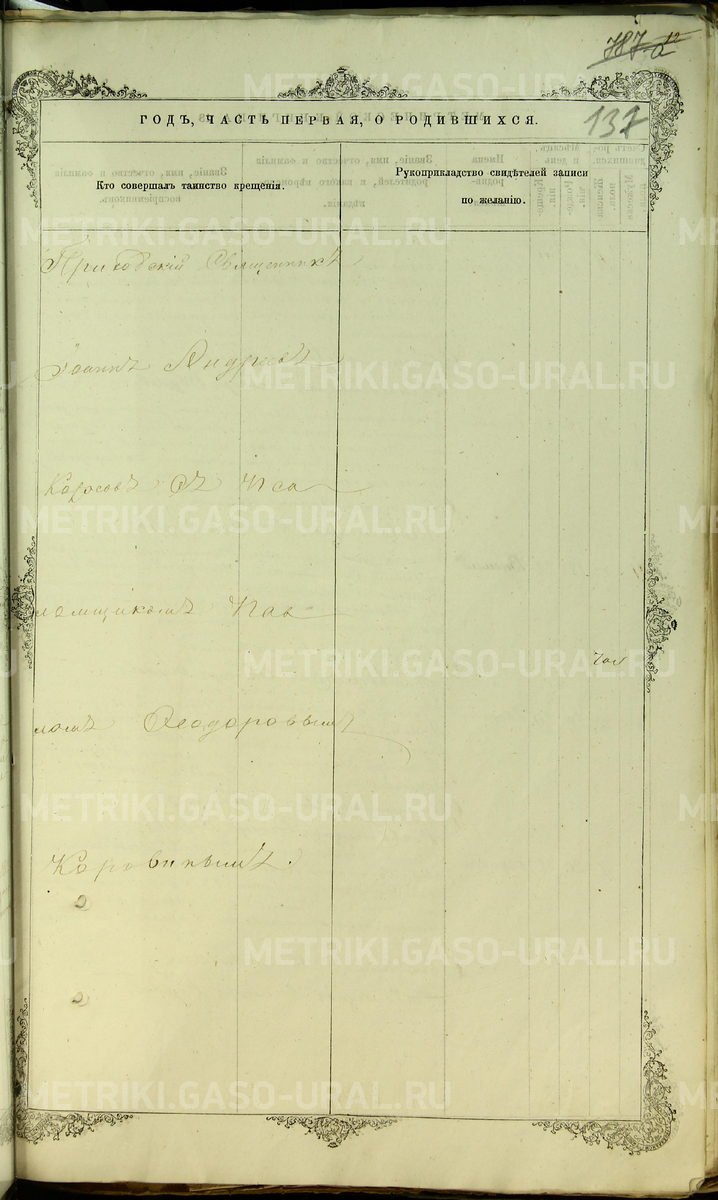 137
ГОДЪ, ЧАСТЬ ПЕРВАЯ, О РОДИВШИХСЯ.
Кто совершалъ таинство крещенія.
Рукоприкладство свидѣтелей записи
по желанію.
Приходскій Священникъ
Іоаннъ Андрее
Съ Пса
ломщикомъ Пав
ломъ Ѳеодоровымъ
METRIKI.GASO-URAL.RU